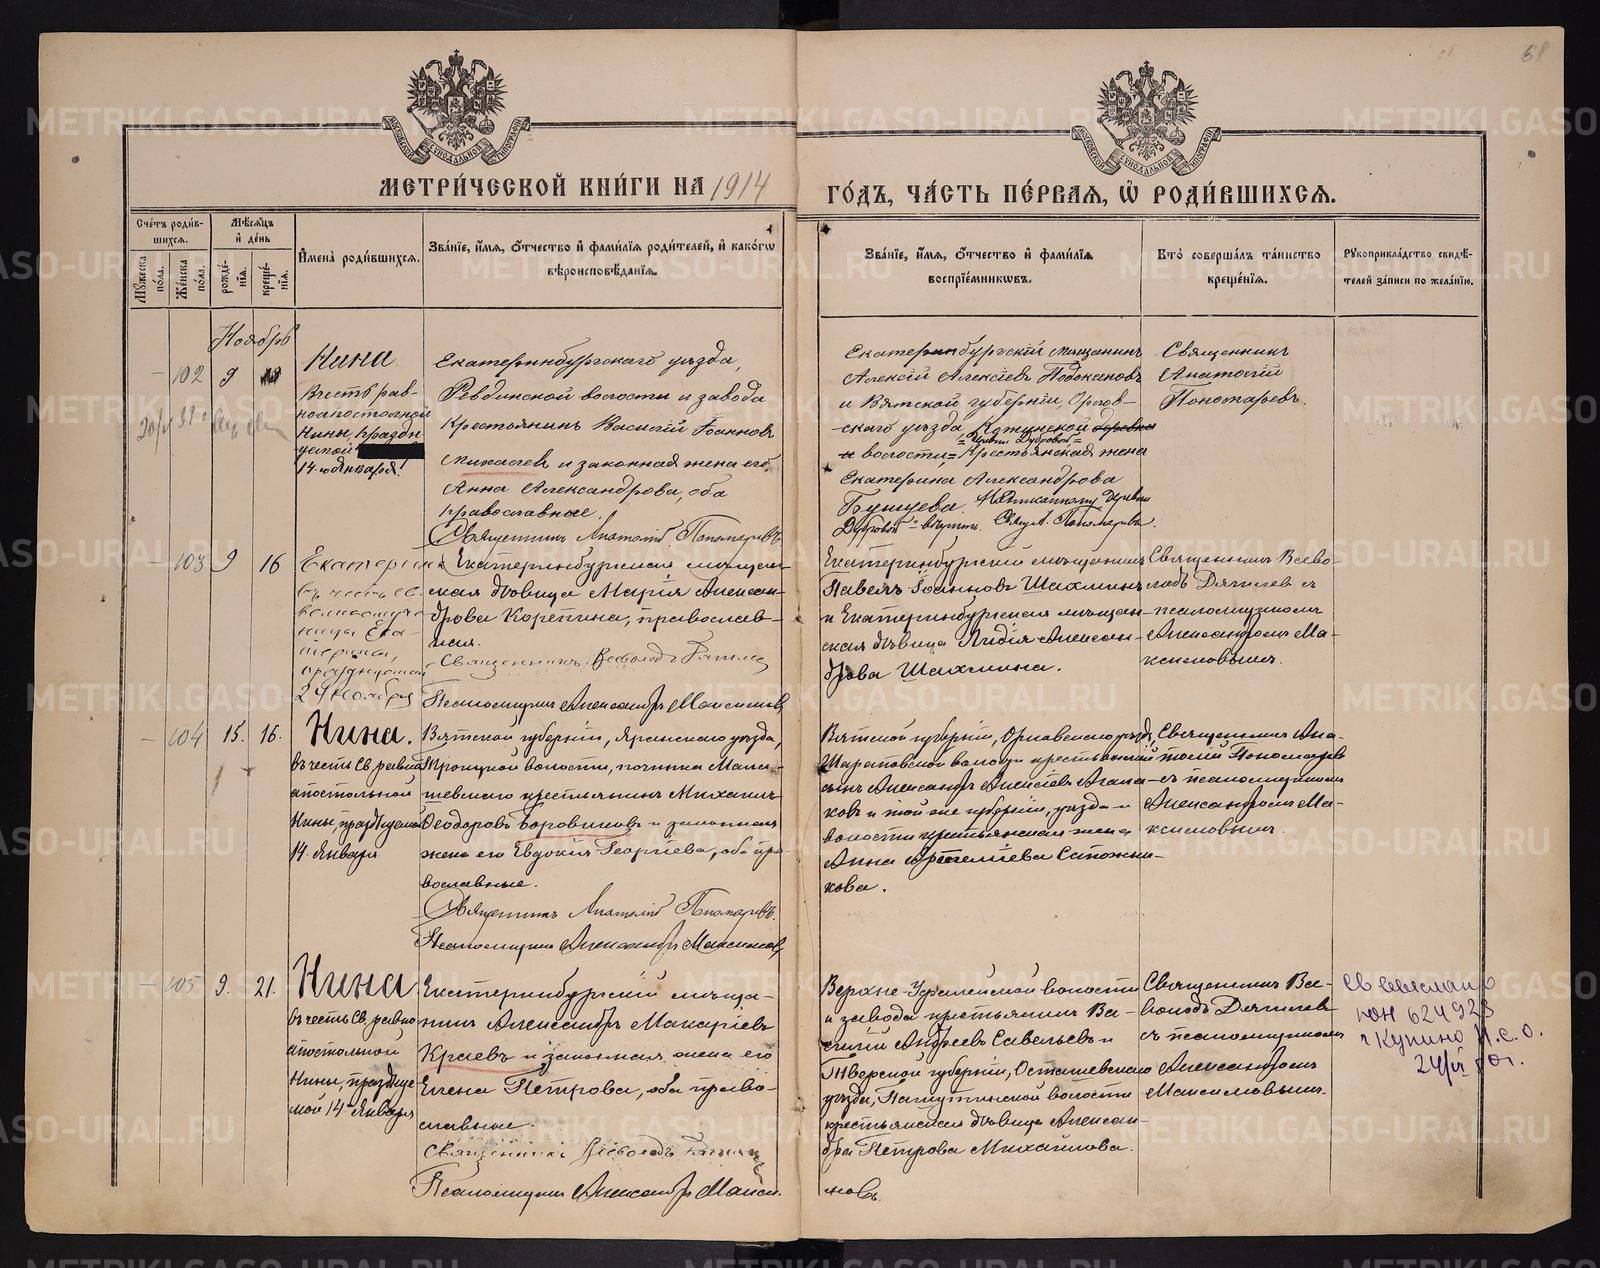 МЕТРИ́ЧЕСКОЙ КНИ́ГИ НА 1914
ГО́ДЪ, ЧА́СТЬ ПЕ́РВАЯ, Ѽ РОДИ́ВШИХСЯ.
МОСКОВСКОЙ СѴНОДАЛЬНОЙ ТИПОГРАФІИ
МОСКОВСКОЙ СѴНОДАЛЬНОЙ ТИПОГРАФІИ
Сче́тъ роди́в-
шихся.
Мꙋ́жеска по́ла.
Же́нска по́ла.
Мѣ́сяцъ
и҆ де́нь
рожде́-
нїя.
креще́-
нїя.
И҆мена̀ роди́вшихся.
Зва́нїе, и҆́мя, ѻ҆́тчество и҆ фами́лїя роди́телей, и҆ како́гѡ
вѣроисповѣ́данїя.
Зва́нїе, и҆́мя, ѻ҆́тчество и҆ фами́лїя
воспрїе́мникѡвъ.
Кто̀ соверша́лъ та́инство
креще́нїя.
Рꙋкоприкла́дство свидѣ́-
телей за́писи по жела́нїю.
Ноябрь
102 9
Нина
Въ честь рав-
ноапостольной
Нины, праздн-
уемой
14-го Января.
Екатеринбургскаго уѣзда,
Ревдинской волости и завода
Крестьянинъ Василій Іоанновъ
и законная жена его
Анна Александрова, оба
православные.
Священникъ Анатолій Пономаревъ
Екатеринбургскій мѣщанинъ
Алексій Алексіевъ
и Вятской губерніи, Орлов-
скаго уѣзда
волости, Крестьянская жена
Екатерина Александрова
Священникъ
Анатолій
Пономаревъ.
103 9 16
Екатерина
въ честь св.
великомуче-
ницы Ека-
терины,
празднуемой
24 Ноября
Екатеринбургская мѣщан-
ская дѣвица Марія Алексан-
дрова Корепина, православ-
ная.
Священникъ Всеволодъ
Псаломщикъ Александръ Максимовъ
Екатеринбургскій мѣщанинъ
Павелъ Іоанновъ Шахминъ
и Екатеринбургская мѣщан-
ская дѣвица Лидія Алексан-
дрова Шахмина.
Священникъ Всево-
лодъ Дягилев съ
псаломщикомъ
Александромъ Ма-
ксимовымъ.
104 15. 16.
Нина.
въ честь Св. равно-
апостольной
Нины, празднуемой
14 Января
Вятской губерніи, Яранскаго уѣзда,
Троицкой волости, починка Мала-
шевскаго крестьянинъ Михаилъ
Ѳеодоровъ Боровиковъ и законная
жена его Евдокія Георгіева, оба пра-
вославные.
Священникъ Анатолій Пономаревъ.
Псаломщикъ Александръ Максимовъ
Вятской губерніи, Орловскаго уѣзда,
волости крестьянскій
сынъ Александръ Алексѣевъ
и той же губерніи, уѣзда и
волости крестьянская жена
Анна Сапожни-
кова.
Священникъ Ана-
толій Пономаревъ
съ псаломщикомъ
Александромъ Ма-
ксимовымъ.
105 9. 21.
Нина
въ честь Св. равно-
апостольной
Нины, праздѹе-
мой 14 Января
Екатеринбургскій мѣща-
нинъ Александръ Макаріевъ
Краевъ и законная жена его
Елена Петрова, оба право-
славные.
Священникъ Всеволодъ
Псаломщикъ Александръ Макси-
мовъ.
Верхне-Уфалейской волости
и завода крестьянинъ Ва-
силій Андреевъ Савельевъ и
Тверской губерніи, Осташевскаго
уѣзда, волости
крестьянская дѣвица Алексан-
дра Петрова Михайлова.
Священникъ Все-
володъ Дягилев
съ псаломщикомъ
Александромъ
Максимовымъ.
св выслано
624923
г Купино Н.С.О.